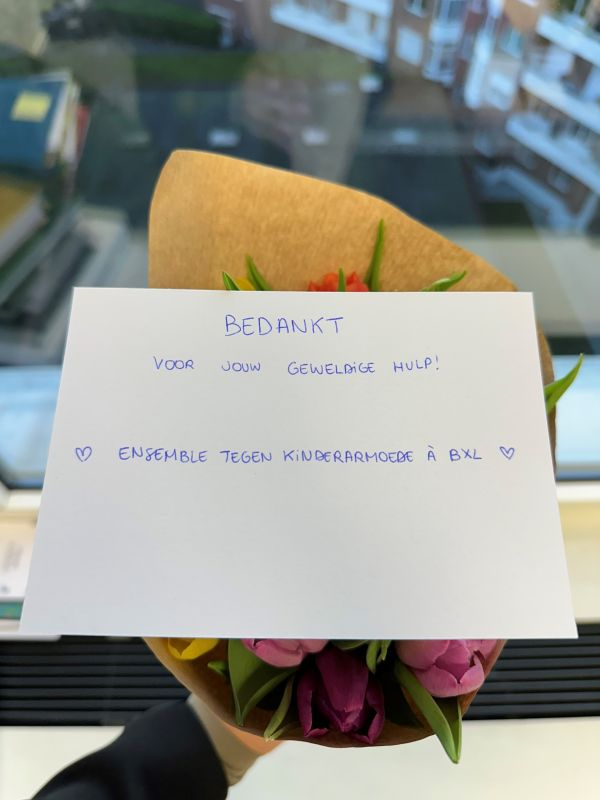 BEDANKT
VOOR JOUW GEWELDIGE HULP!
♡ ENSEMBLE TEGEN KINDERARMOEDE À BXL ♡